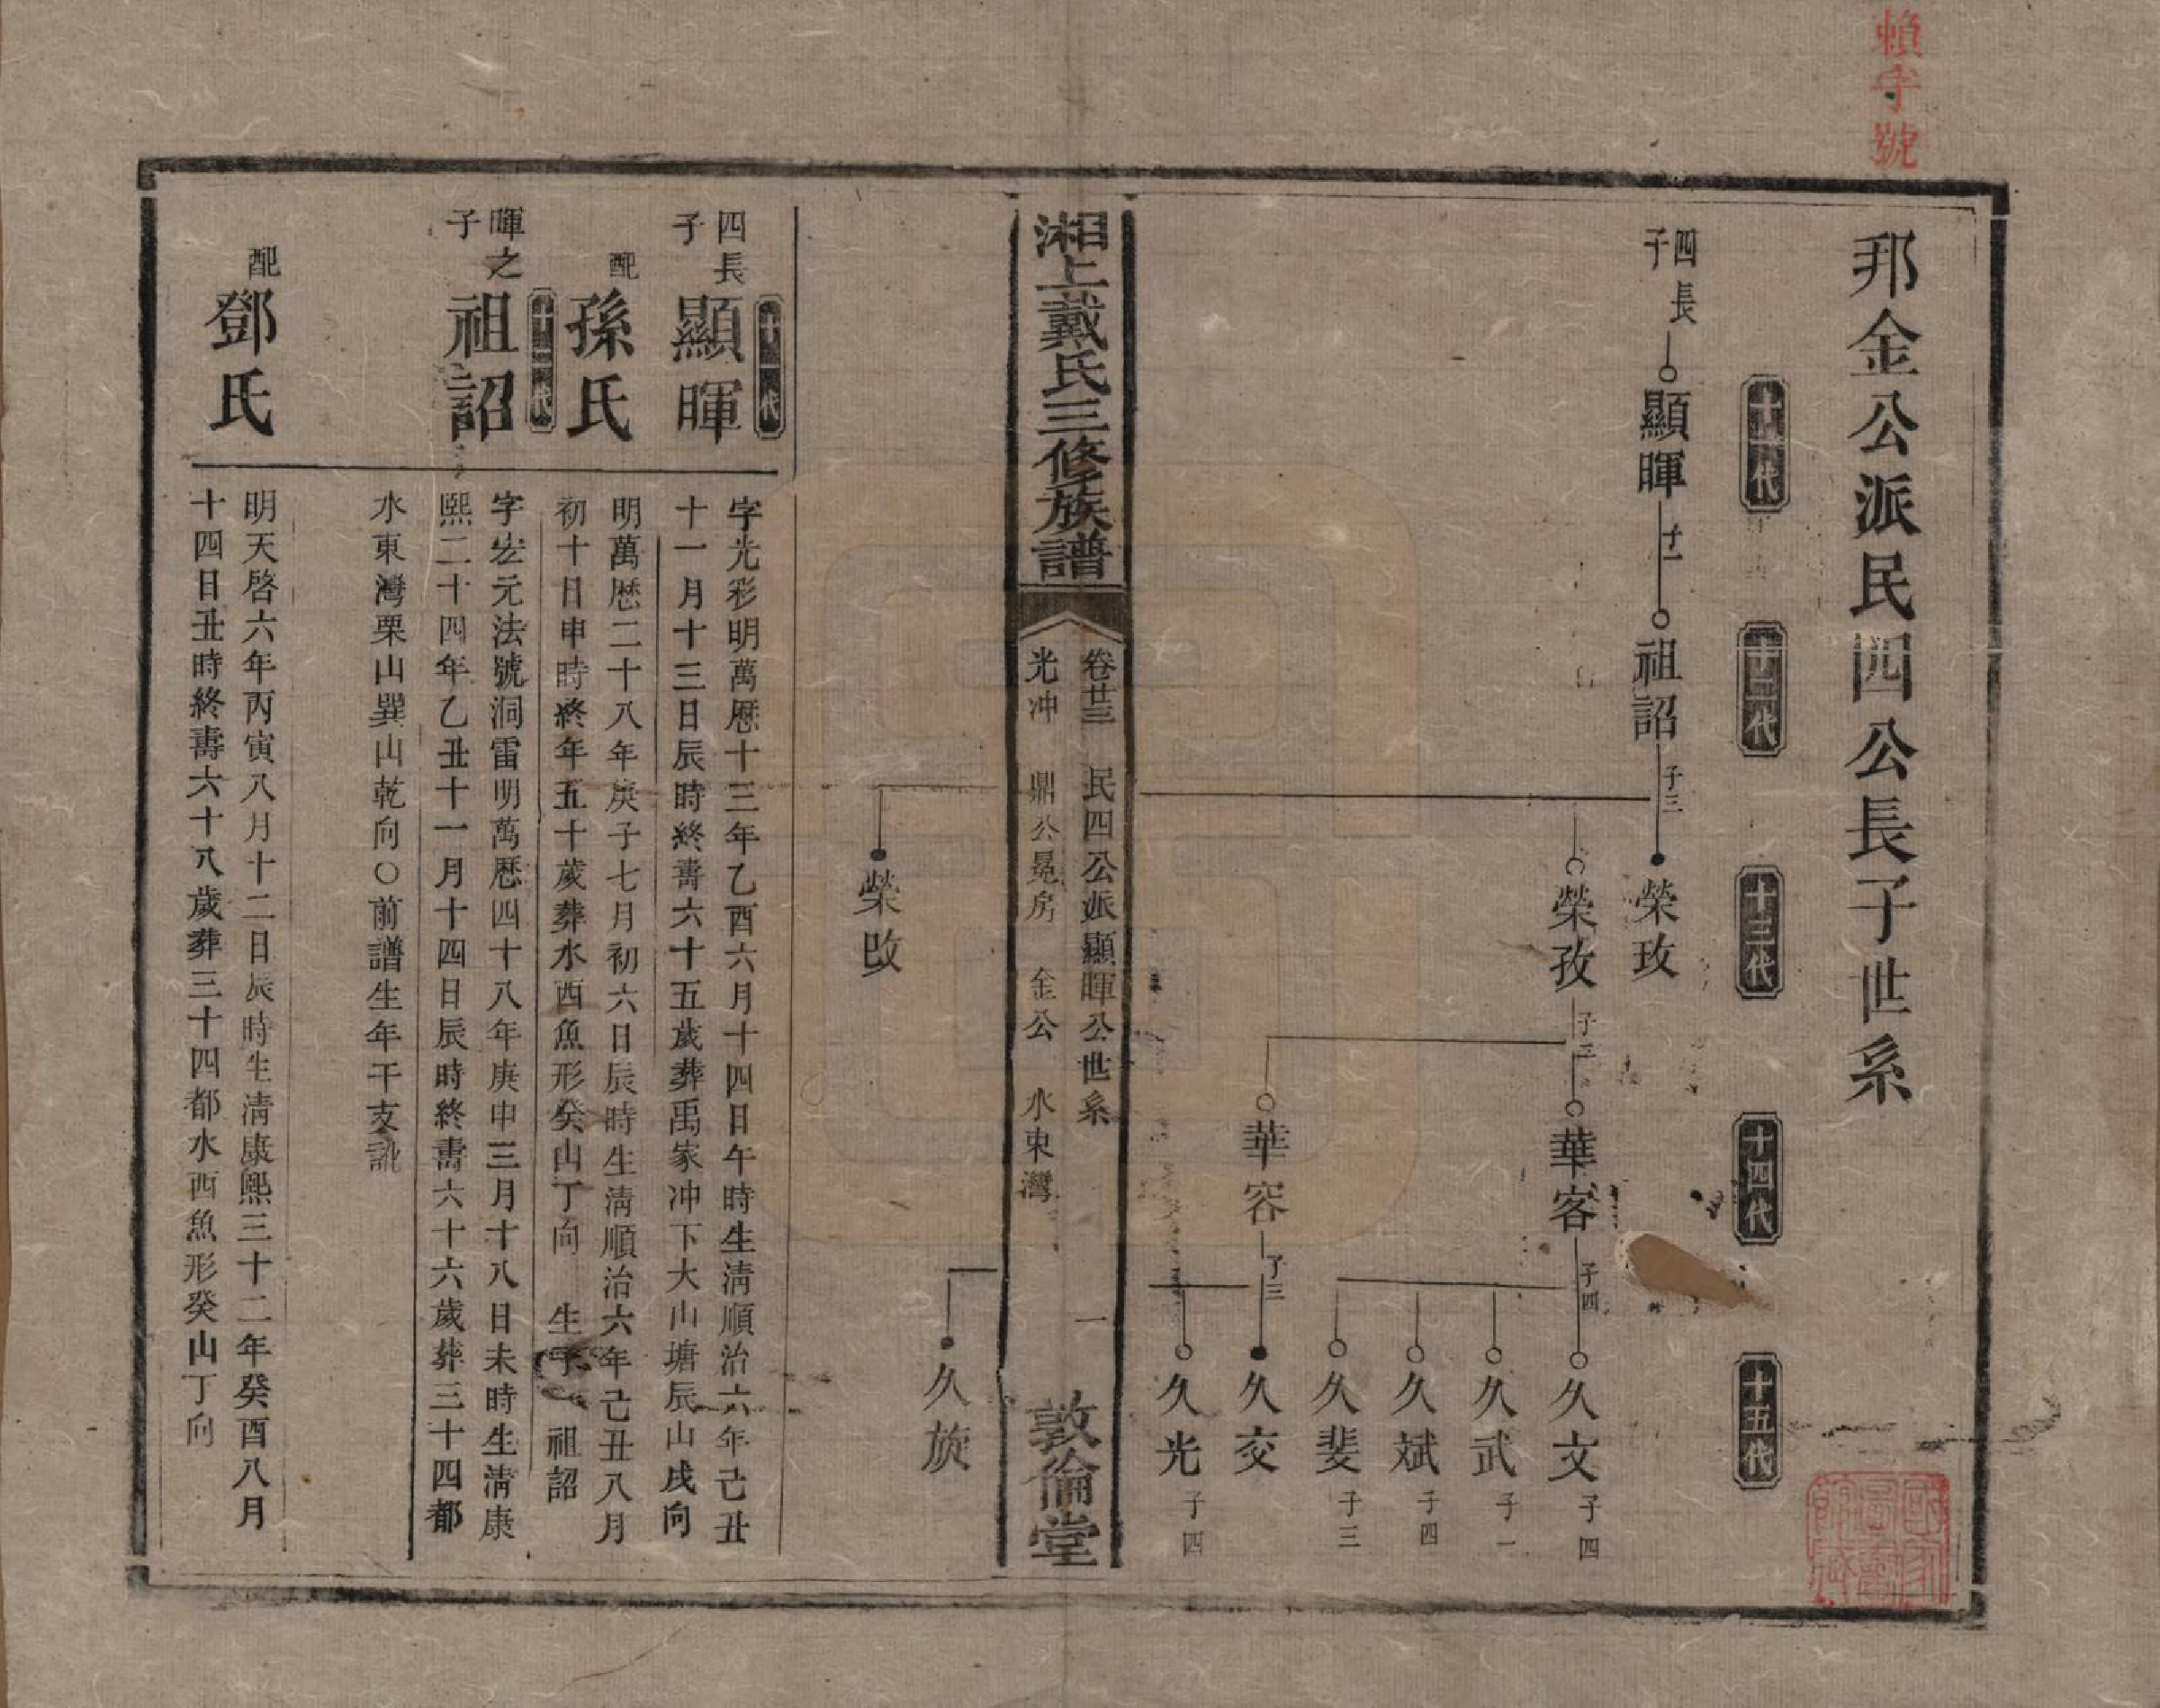 賴字號
邦金公派民四公長子世系
十一代
十二代
十三代
十四代
十五代
四長子
顯暉
十一
祖詔
子三
榮玫
榮孜
子二
華客
子四
久文
子四
久武
子一
久斌
子四
久斐
子三
華容
子三
久交
久光
子四
湘上戴氏三修族譜
卷廿三 民四公派顯暉公世系 一
光冲 鼎公冕房 金公 水東灣
敦倫堂
久旋
榮改
十一代
四長子
顯暉
字光彩明萬歷十三年乙酉六月十四日午時生淸順治六年己丑
十一月十三日辰時終壽六十五歲葬禹家冲下大山塘辰山戌向
配
孫氏
明萬歷二十八年庚子七月初六日辰時生淸順治六年己丑八月
初十日申時終年五十歲葬水西魚形癸山丁向 生子一祖詔
十二代
暉之子
祖詔
字宏元法號洞雷明萬歷四十八年庚申三月十八日未時生淸康
熙二十四年乙丑十一月十四日辰時終壽六十六歲葬三十四都
水東灣栗山巽山乾向〇前譜生年干支訛
配
鄧氏
明天啓六年丙寅八月十二日辰時生淸康熙三十二年癸酉八月
十四日丑時終壽六十八歲葬三十四都水西魚形癸山丁向